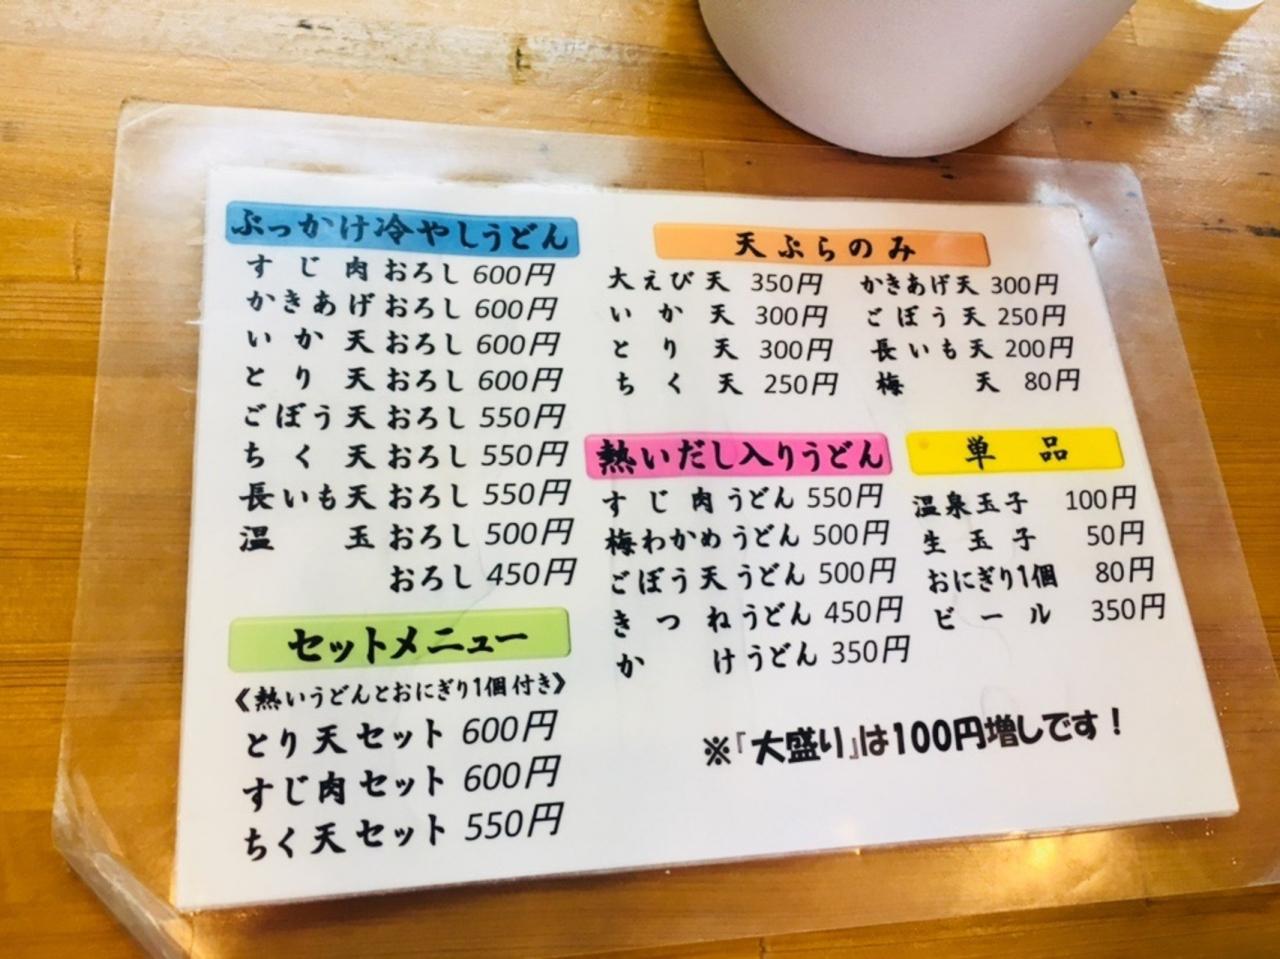 ぶっかけ冷やしうどん
すじ肉おろし 600円
かきあげおろし 600円
いか天おろし 600円
とり天おろし 600円
ごぼう天おろし 550円
ちく天おろし 550円
長いも天おろし 550円
温玉おろし 500円
おろし 450円
セットメニュー
《熱いうどんとおにぎり1個付き》
とり天セット 600円
すじ肉セット 600円
ちく天セット 550円
天ぷらのみ
大えび天 350円 かきあげ天 300円
いか天 300円 ごぼう天 250円
とり天 300円 長いも天 200円
ちく天 250円 梅天 80円
熱いだし入りうどん
すじ肉うどん 550円
梅わかめうどん 500円
ごぼう天うどん 500円
きつねうどん 450円
かけうどん 350円
単品
温泉玉子 100円
生玉子 50円
おにぎり1個 80円
ビール 350円
※『大盛り』は100円増しです!